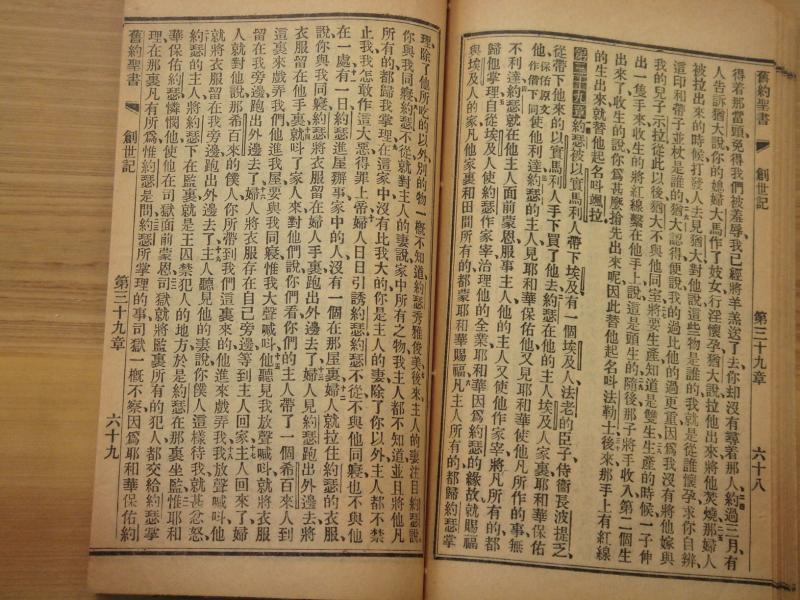 舊約聖書 創世記 第三十九章 六十八
得着那當頭免得我們被羞辱我已經將羊羔送了去你却沒有尋着那人約過三月有
人告訴猶大說你的媳婦大馬作了妓女行淫懷孕猶大說拉他出來將他焚燒那婦人
被拉出來的時候打發人去見猶大對他說這些物是誰的我就是從誰懷孕求你自辨
這印和帶子並杖是誰的猶大認得便說我的過比他的過更重因爲我沒有將他嫁與
我的兒子示拉從此以後猶大不與他同室將要生產知道是雙生生產的時候一子伸
出一隻手來收生的將紅線繫在他手上說這是頭生的隨後那子將手收入第二個生
出來了收生的說你爲甚麼搶先出來呢因此替他起名叫法勒士後來那手上有紅線
的生出來就替他起名叫颯拉
第三十九章約瑟被以實馬利人帶下埃及有一個埃及人法老的臣子侍衞長波提乏
從帶下他來的以實馬利人手下買了他去約瑟在他的主人埃及人家裏耶和華保佑
他保佑原文作偕下同使他利達約瑟的主人見耶和華保佑他又見耶和華使他凡所作的事無
不利達約瑟就在他主人面前蒙恩服事主人他的主人又使他作家宰將凡所有的都
歸他掌理自從埃及人使約瑟作家宰治理他的全業耶和華因爲約瑟的緣故就賜福
與埃及人的家凡他家裏和田間所有的都蒙耶和華賜福凡主人所有的都歸約瑟掌
理除了他所吃的以外別的物一概不知道約瑟秀雅俊美後來主人的妻注目約瑟說
你與我同寢約瑟不從就對主人的妻說家中所有之物我主人都不知道並且將他凡
所有的都歸我掌理在這家中沒有比我大的你是主人的妻除了你以外主人都不禁
止我我怎敢作這大惡得罪上帝婦人日日引誘約瑟約瑟不從不與他同寢也不與他
在一處有一日約瑟進屋辦事家中的人沒有一個在那屋裏婦人就拉住約瑟的衣服
說你與我同寢約瑟將衣服留在婦人手裏跑出外邊去了婦人見約瑟跑出外邊去將
衣服留在他手裏就叫了家人來對他們說你們看你們的主人帶了一個希百來人到
這裏來戲弄我們他進我屋要與我同寢惟我大聲喊叫他聽見我放聲喊叫就將衣服
留在我旁邊跑出外邊去了婦人將衣服存在自己旁邊等到主人回家主人回來了婦
人就對他說那希百來的僕人你所帶到我們這裏來的他進來戲弄我我放聲喊叫他
就將衣服留在我旁邊跑出外邊去了主人聽見他的妻說你僕人這樣待我就甚忿怒
約瑟的主人將約瑟下在監裏就是王囚禁犯人的地方於是約瑟在那裏坐監惟耶和
華保佑約瑟憐憫他使他在司獄面前蒙恩司獄就將監裏所有的犯人都交給約瑟掌
理在那裏凡有所爲惟約瑟是問約瑟所掌理的事司獄一概不察因爲耶和華保佑約
舊約聖書 創世記 第三十九章 六十九